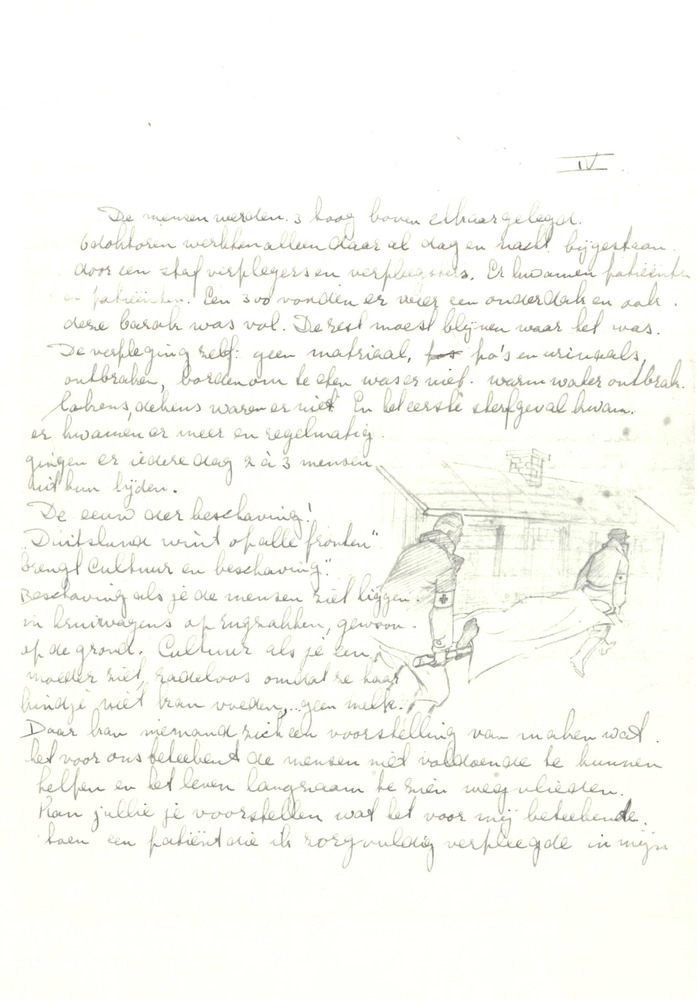 IV
De mensen werden. 3 hoog boven elkaar gelegd.
6 doktoren werkten alleen daar al dag en nacht bijgestaan.
door een staf verplegers en verpleegsters. Er kwamen patiënten
en patiënten. Een 300 vonden er weer een onderdak en ook.
deze barak was vol. De rest moest blijven waar het was.
De verpleging zelf: geen matriaal, po's en urinaals,
ontbraken, borden om te eten was er niet. warm water ontbrak.
lakens, dekens waren er niet En het eerste sterfgeval kwam.
er kwamen er meer en regelmatig
gingen er iedere dag 2 à 3 mensen
uit hun lijden.
De eeuw der beschaving!
Duitsland wint op alle fronten"
brengt Cultuur en beschaving".
Beschaving als je de mensen ziet liggen.
in kruiwagens op zakken, gewoon.
op de grond. Cultuur als je een
moeder ziet, radeloos omdat ze haar
kindje niet kan voeden,.. geen melk.
Daar kan niemand zich een voorstelling van maken wat.
het voor ons beteekent de mensen niet voldoende te kunnen
helpen en het leven langzaam te zien wegvlieden.
Kan jullie je voorstellen wat het voor mij beteekende.
toen een patiënt die ik zorgvuldig verpleegde in mijn